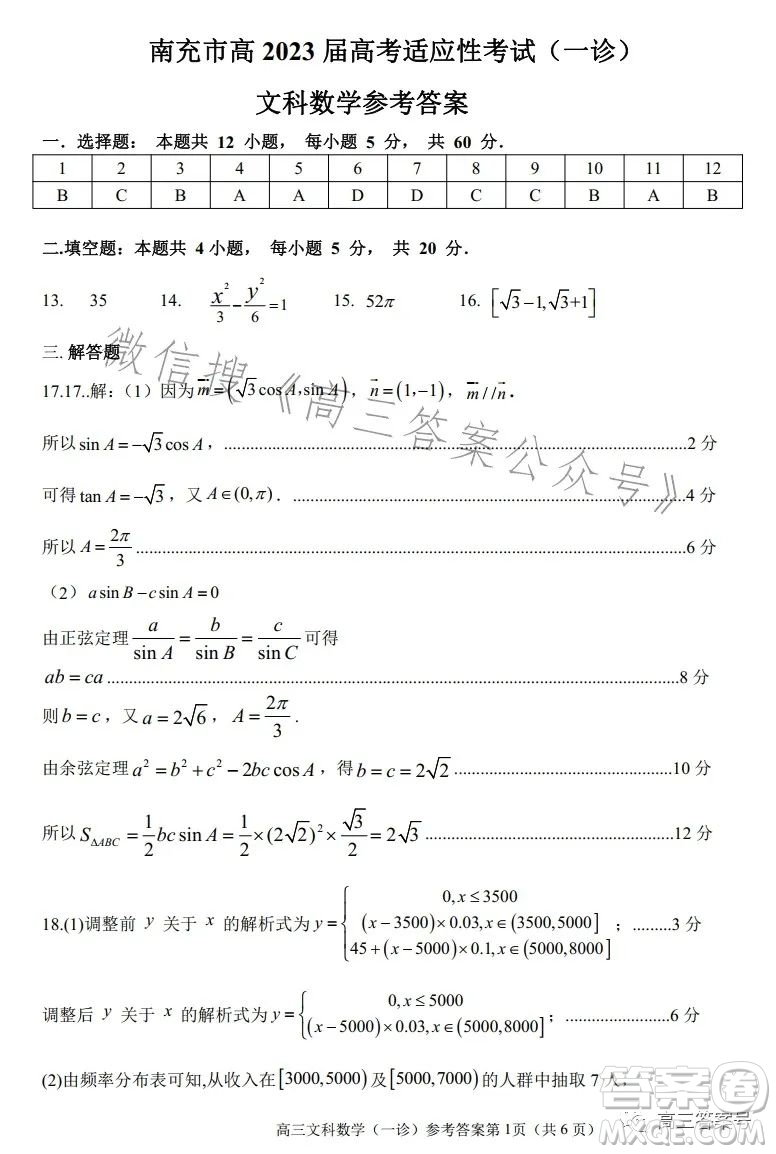 南充市高 2023 届高考适应性考试（一诊）
文科数学参考答案
一．选择题： 本题共 12 小题， 每小题 5 分， 共 60 分．
1 2 3 4 5 6 7 8 9 10 11 12
B C B A A D D C C B A B
二.填空题：本题共 4 小题， 每小题 5 分， 共 20 分．
13. 35 14. x²/3 − y²/6 = 1 15. 52π 16. [√3−1,√3+1]
三. 解答题
17.17..解：（1）因为 m=(√3cosA,sinA)，n=(1,−1)，m//n．
所以 sinA=−√3cosA，......2 分
可得 tanA=−√3，又 A∈(0,π)．......4 分
所以 A=2π/3......6 分
（2）asinB−csinA=0
由正弦定理 a/sinA = b/sinB = c/sinC 可得
ab=ca......8 分
则 b=c，又 a=2√6，A=2π/3.
由余弦定理 a²=b²+c²−2bccosA，得 b=c=2√2......10 分
所以 S△ABC=1/2bcsinA=1/2×(2√2)²×√3/2=2√3......12 分
18.(1)调整前 y 关于 x 的解析式为 y={0,x≤3500
(x−3500)×0.03,x∈(3500,5000]；.........3 分
45+(x−5000)×0.1,x∈(5000,8000]
调整后 y 关于 x 的解析式为 y={0,x≤5000
(x−5000)×0.03,x∈(5000,8000]；......6 分
(2)由频率分布表可知,从收入在[3000,5000)及[5000,7000)的人群中抽取 7 人，
高三文科数学（一诊）参考答案第 1页（共 6 页）
微信搜《高三答案公众号》
答案圈
MXQE.COM
高三答案号